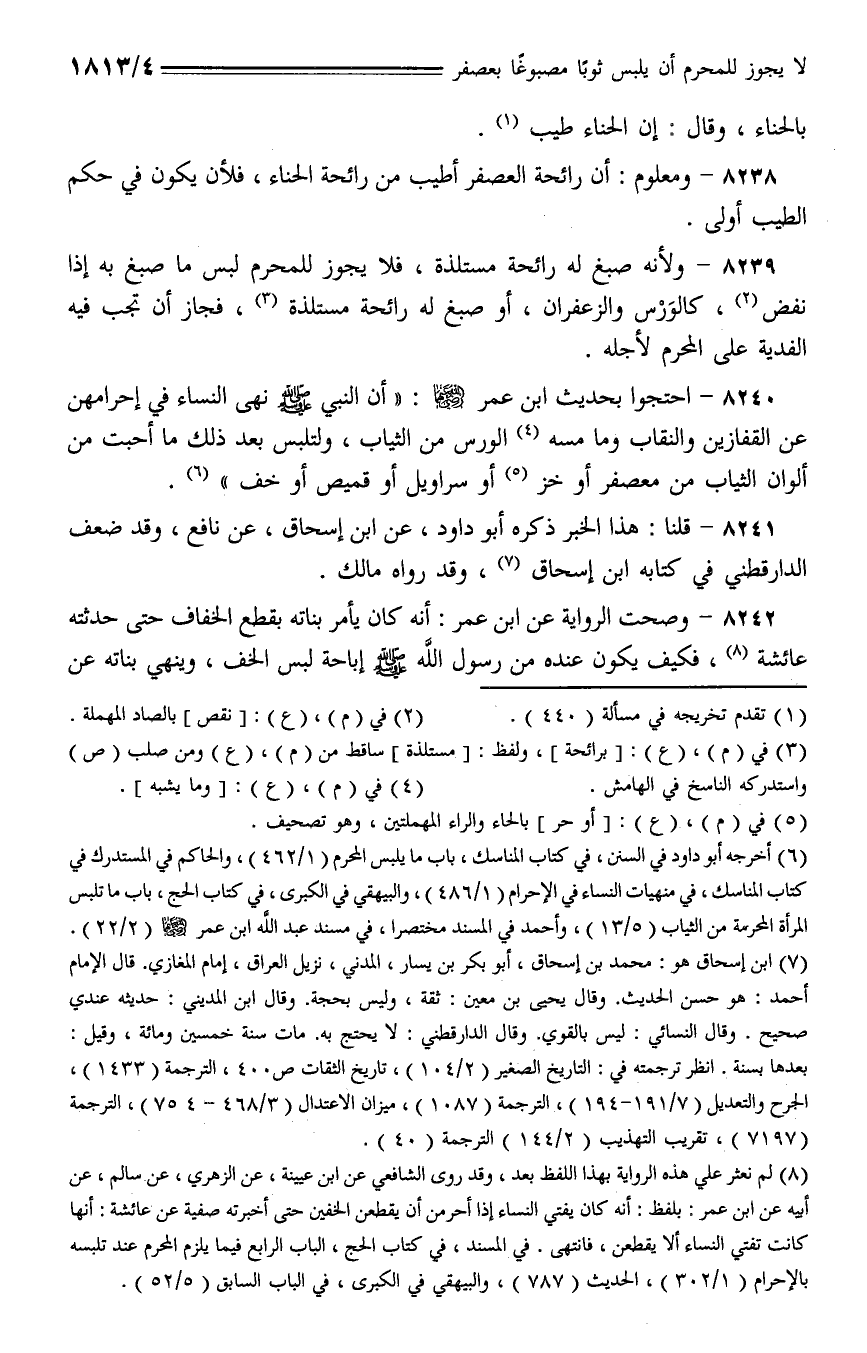 لا يجوز للمحرم أن يلبس ثوبًا مصبوغًا بعصفر ١٨١٣/٤
بالحناء ، وقال : إن الحناء طيب (١) .
٨٢٣٨ – ومعلوم : أن رائحة العصفر أطيب من رائحة الحناء ، فلأن يكون في حكم
الطيب أولى .
٨٢٣٩ – ولأنه صبغ له رائحة مستلذة ، فلا يجوز للمحرم لبس ما صبغ به إذا
نفض (٢) ، كالوَرْس والزعفران ، أو صبغ له رائحة مستلذة (٣) ، فجاز أن تجب فيه
الفدية على المحرم لأجله .
٨٢٤٠ – احتجوا بحديث ابن عمر رضي الله عنهما : « أن النبي ﷺ نهى النساء في إحرامهن
عن القفازين والنقاب وما مسه (٤) الورس من الثياب ، ولتلبس بعد ذلك ما أحبت من
ألوان الثياب من معصفر أو خز (٥) أو سراويل أو قميص أو خف » (٦) .
٨٢٤١ – قلنا : هذا الخبر ذكره أبو داود ، عن ابن إسحاق ، عن نافع ، وقد ضعف
الدارقطني في كتابه ابن إسحاق (٧) ، وقد رواه مالك .
٨٢٤٢ – وصحت الرواية عن ابن عمر : أنه كان يأمر بناته بقطع الخفاف حتى حدثته
عائشة (٨) ، فكيف يكون عنده من رسول اللَّه ﷺ إباحة لبس الخف ، وينهي بناته عن
(١) تقدم تخريجه في مسألة ( ٤٤٠ ) . (٢) في ( م ) ، ( ع ) : [ نقص ] بالصاد المهملة .
(٣) في ( م ) ، ( ع ) : [ برائحة ] ، ولفظ : [ مستلذة ] ساقط من ( م ) ، ( ع ) ومن صلب ( ص )
واستدركه الناسخ في الهامش . (٤) في ( م ) ، ( ع ) : [ وما يشبه ] .
(٥) في ( م ) ، ( ع ) : [ أو حر ] بالحاء والراء المهملتين ، وهو تصحيف .
(٦) أخرجه أبو داود في السنن ، في كتاب المناسك ، باب ما يلبس المحرم ( ٤٦٢/١ ) ، والحاكم في المستدرك في
كتاب المناسك ، في منهيات النساء في الإحرام ( ٤٨٦/١ ) ، والبيهقي في الكبرى ، في كتاب الحج ، باب ما تلبس
المرأة المحرمة من الثياب ( ١٣/٥ ) ، وأحمد في المسند مختصرا ، في مسند عبد اللَّه ابن عمر رضي الله عنهما ( ٢٢/٢ ) .
(٧) ابن إسحاق هو : محمد بن إسحاق ، أبو بكر بن يسار ، المدني ، نزيل العراق ، إمام المغازي. قال الإمام
أحمد : هو حسن الحديث. وقال يحيى بن معين : ثقة ، وليس بحجة. وقال ابن المديني : حديثه عندي
صحيح . وقال النسائي : ليس بالقوي. وقال الدارقطني : لا يحتج به. مات سنة خمسين ومائة ، وقيل :
بعدها بسنة . انظر ترجمته في : التاريخ الصغير ( ١٠٤/٢ ) ، تاريخ الثقات ص٤٠٠ ، الترجمة ( ١٤٣٣ ) ،
الجرح والتعديل ( ١٩١/٧-١٩٤ ) ، الترجمة ( ١٠٨٧ ) ، ميزان الاعتدال ( ٤٦٨/٣ – ٤٧٥ ) ، الترجمة
( ٧١٩٧ ) ، تقريب التهذيب ( ١٤٤/٢ ) الترجمة ( ٤٠ ) .
(٨) لم نعثر علي هذه الرواية بهذا اللفظ بعد ، وقد روى الشافعي عن ابن عيينة ، عن الزهري ، عن سالم ، عن
أبيه عن ابن عمر : بلفظ : أنه كان يفتي النساء إذا أحرمن أن يقطعن الخفين حتى أخبرته صفية عن عائشة : أنها
كانت تفتي النساء ألا يقطعن ، فانتهى . في المسند ، في كتاب الحج ، الباب الرابع فيما يلزم المحرم عند تلبسه
بالإحرام ( ٣٠٢/١ ) ، الحديث ( ٧٨٧ ) ، والبيهقي في الكبرى ، في الباب السابق ( ٥٢/٥ ) .